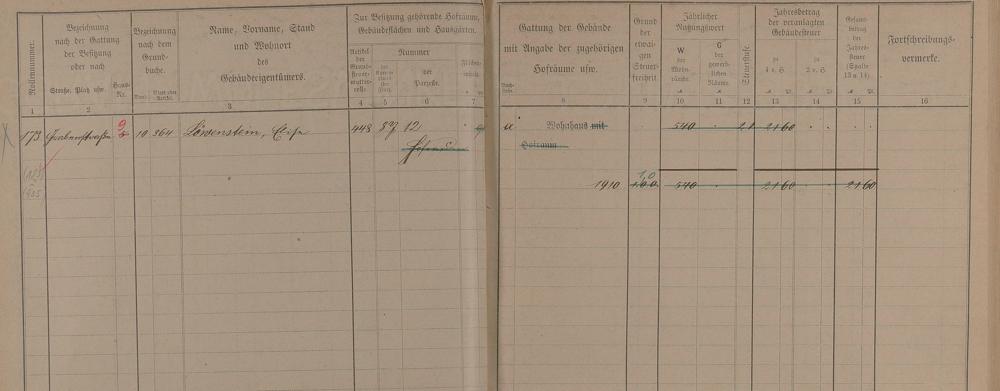 Rollennummer.
Bezeichnung
nach der Gattung
der Besitzung
oder nach
Straße, Platz usw.
Haus-
Nr.
Bezeichnung
nach dem
Grund-
buche.
Name, Vorname, Stand
und Wohnort
des
Gebäudeeigentümers.
Zur Besitzung gehörende Hofräume,
Gebäudeflächen und Hausgärten.
Artikel
der
Grund-
steuer-
mutter-
rolle
Nummer
der
Parzelle.
Gattung der Gebäude
mit Angabe der zugehörigen
Hofräume usw.
Grund
der
etwai-
gen
Steuer-
freiheit
Jährlicher
Nutzungswert
W
der
Wohn-
räume
G
der
gewerb-
lichen
Räume.
Steuerstufe.
Jahresbetrag
der veranlagten
Gebäudesteuer
zu
4 v. H.
zu
2 v. H.
Gesamt-
betrag
der
Jahres-
steuer
(Spalte
13 u. 14).
Fortschreibungs-
vermerke.
1 2 3 4 5 6 7 8 9 10 11 12 13 14 15 16
173 Grabenstraße 9 10 364 Löwenstein, Elise 448 37 12 a Wohnhaus mit 540 21 21 60
Hofraum
1910 10 540 21 60 21 60